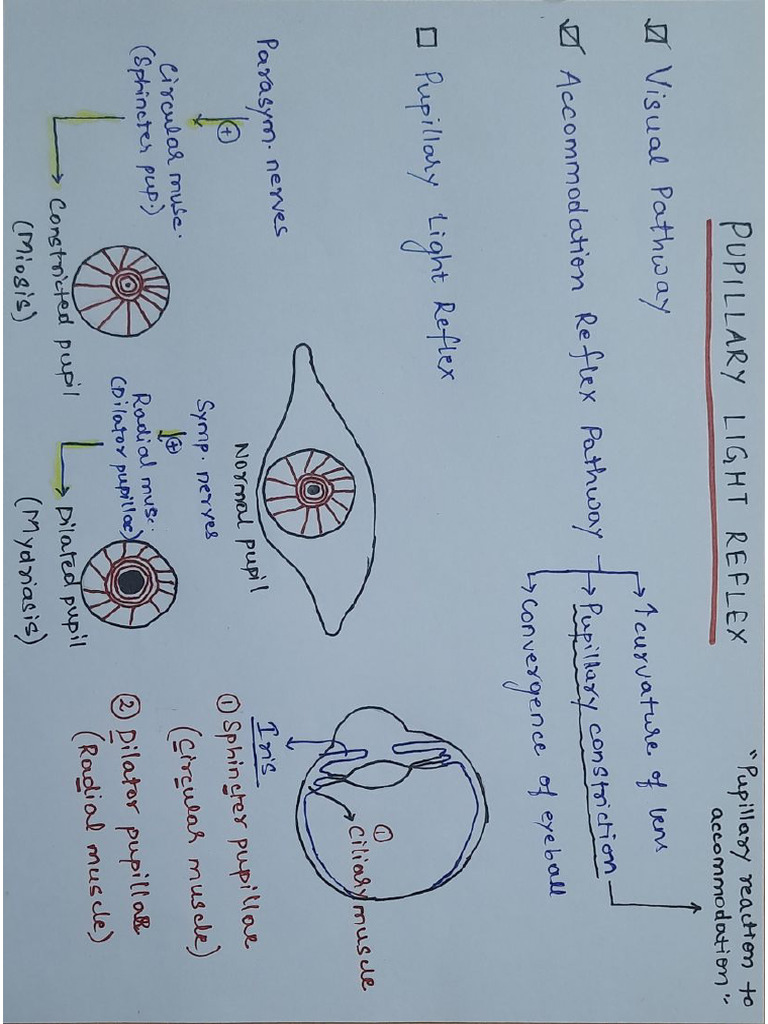 PUPILLARY LIGHT REFLEX
"Pupillary reaction to
accommodation"
☑ Visual Pathway
☑ Accommodation Reflex Pathway
↑ curvature of lens
Pupillary constriction
convergence of eyeball
☐ Pupillary Light Reflex
Parasym. nerves
(+)
Circular musc.
(Sphincter pup.)
Constricted pupil
(Miosis)
Normal pupil
Symp. nerves
(+)
Radial musc.
(Dilator pupillae)
Dilated pupil
(Mydriasis)
① Ciliary muscle
Iris
① Sphincter pupillae
(Circular muscle)
② Dilator pupillae
(Radial muscle)